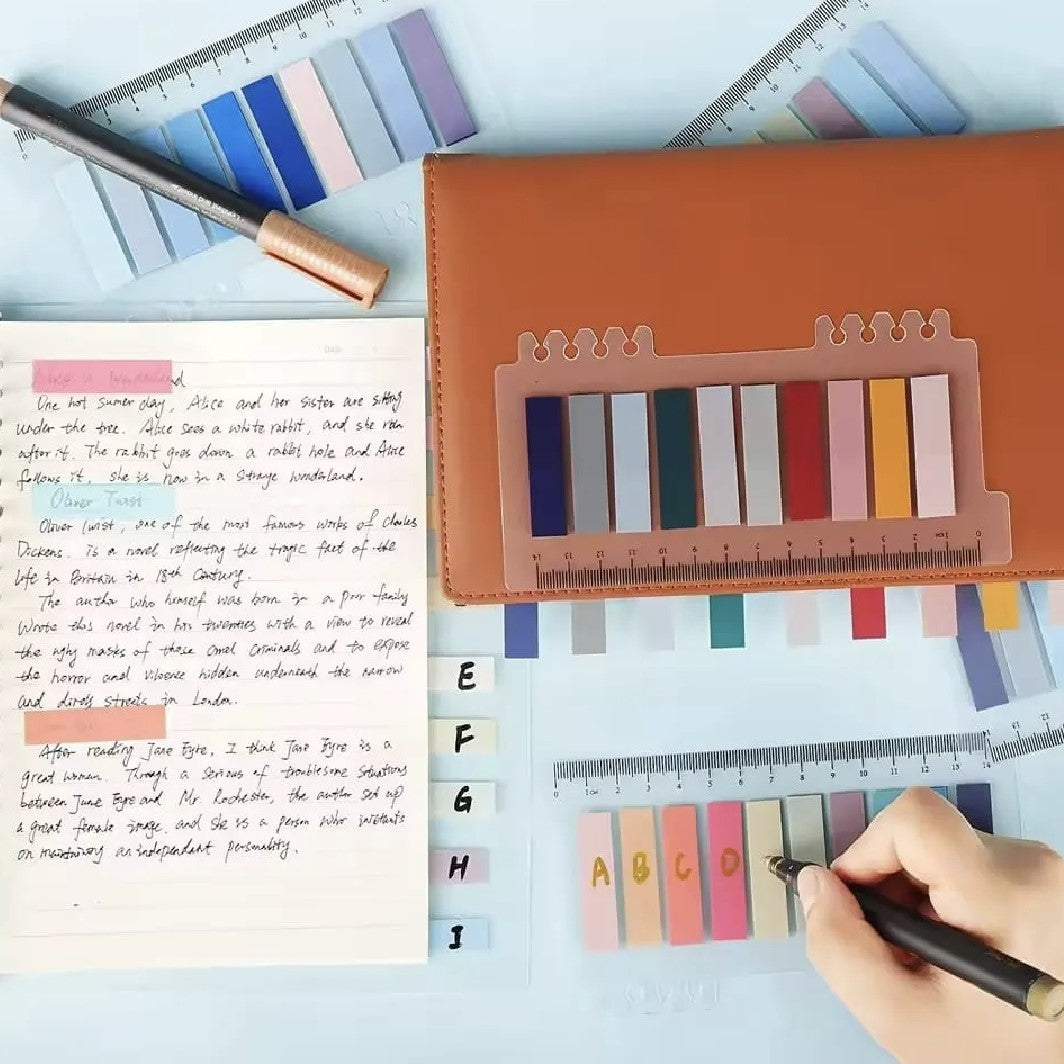 Alice in Wonderland
One hot sumer day, Alice and her sister are sitting
under the tree. Alice sees a white rabbit, and she ran
after it. The rabbit goes down a rabbit hole and Alice
follows it, she is now in a strage wonderland.
Oliver Twist
Oliver Twist, one of the most famous works of Charles
Dickens. Is a novel reflecting the tragic fact of the
life in Britain in 18th Century.
The author who himself was born in a poor family
Wrote this novel in his twenties with a view to reveal
the ugly masks of those cruel criminals and to expose
the horror and violence hidden underneath the narrow
and dirty streets in London.
After reading Jane Eyre, I think Jane Eyre is a
great woman. Through a serious of troublesome situations
between Jane Eyre and Mr. Rochester, the author set up
a great female image. and she is a person who
on an independent personality.
E
F
G
H
I
14 13 12 11 10 9 8 7 6 5 4 3 2 1cm 0
0 1cm 2 3 4 5 6 7 8 9 10 11 12 13 14
A B C D